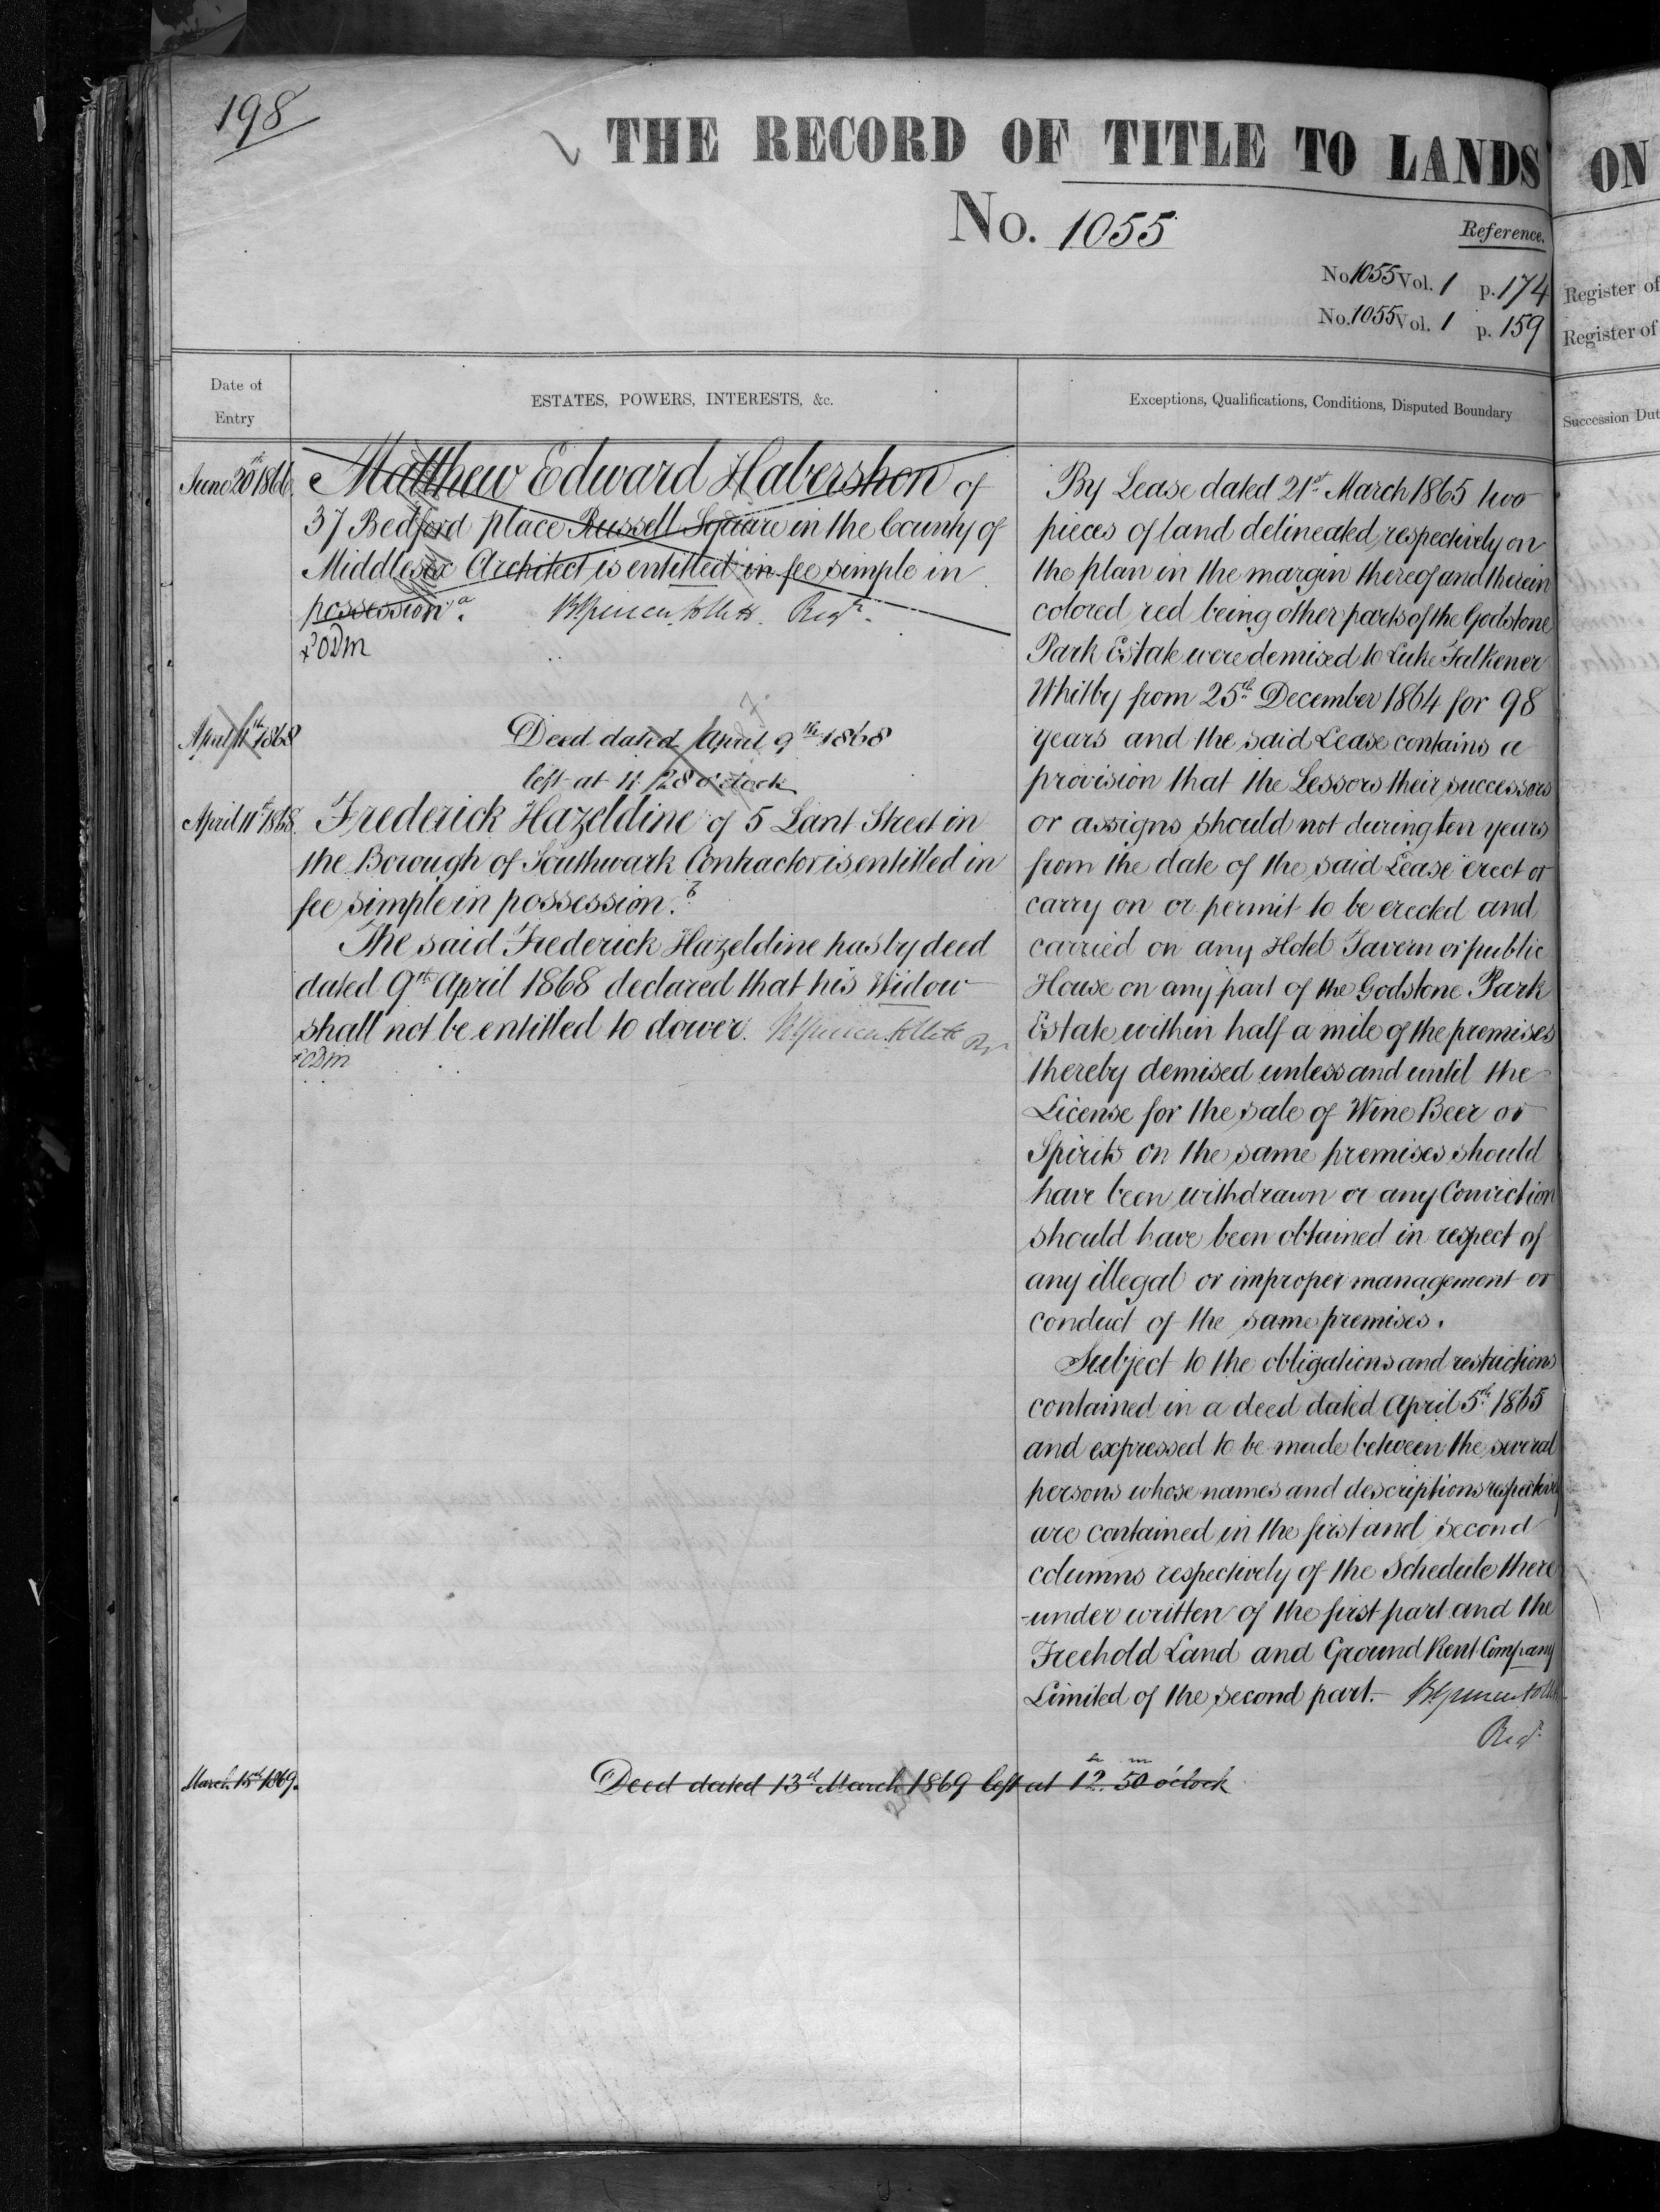 198
THE RECORD OF TITLE TO LANDS
ON
No. 1055
Reference.
No. 1055 Vol. 1 p. 174
No. 1055 Vol. 1 p. 159
Register of
Register of
Date of
Entry
ESTATES, POWERS, INTERESTS, &c.
Exceptions, Qualifications, Conditions, Disputed Boundary
Succession Dut
June 20th 1866.
Matthew Edward Habershon of
37 Bedford place Russell Square in the County of
Middlesex Architect is entitled in fee simple in
possession. a
Regr.
April 11th 1868
Deed dated April 9th 1868
left at 11. 28 o'clock
April 11th 1868.
Frederick Hazeldine of 5 Lant Street in
the Borough of Southwark Contractor is entitled in
fee simple in possession. b
The said Frederick Hazeldine has by deed
dated 9th April 1868 declared that his Widow
shall not be entitled to dower.
By Lease dated 21st March 1865 two
pieces of land delineated respectively on
the plan in the margin thereof and therein
colored red being other parts of the Godstone
Park Estate were demised to Luke Falkener
Whitby from 25th December 1864 for 98
years and the said Lease contains a
provision that the Lessors their successors
or assigns should not during ten years
from the date of the said Lease erect or
carry on or permit to be erected and
carried on any Hotel Tavern or public
House on any part of the Godstone Park
Estate within half a mile of the premises
thereby demised unless and until the
License for the sale of Wine Beer or
Spirits on the same premises should
have been withdrawn or any Conviction
should have been obtained in respect of
any illegal or improper management or
conduct of the same premises.
Subject to the obligations and restrictions
contained in a deed dated April 5th 1865
and expressed to be made between the several
persons whose names and descriptions respectively
are contained in the first and second
columns respectively of the Schedule there
-under written of the first part and the
Freehold Land and Ground Rent Company
Limited of the second part.
Regr.
March 15th 1869.
Deed dated 13th March 1869 left at 12h 50m o'clock